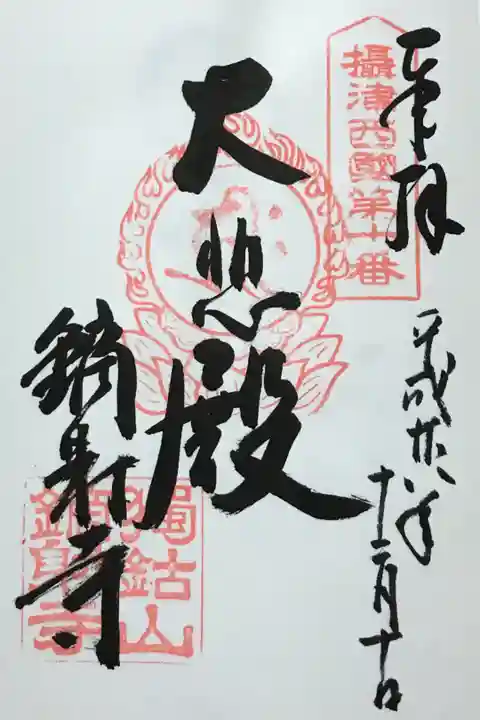 奉拝
攝津西國第十番
平成廿八年
十二月十日
大悲殿
鏑射寺
獨鈷山
鏑射寺